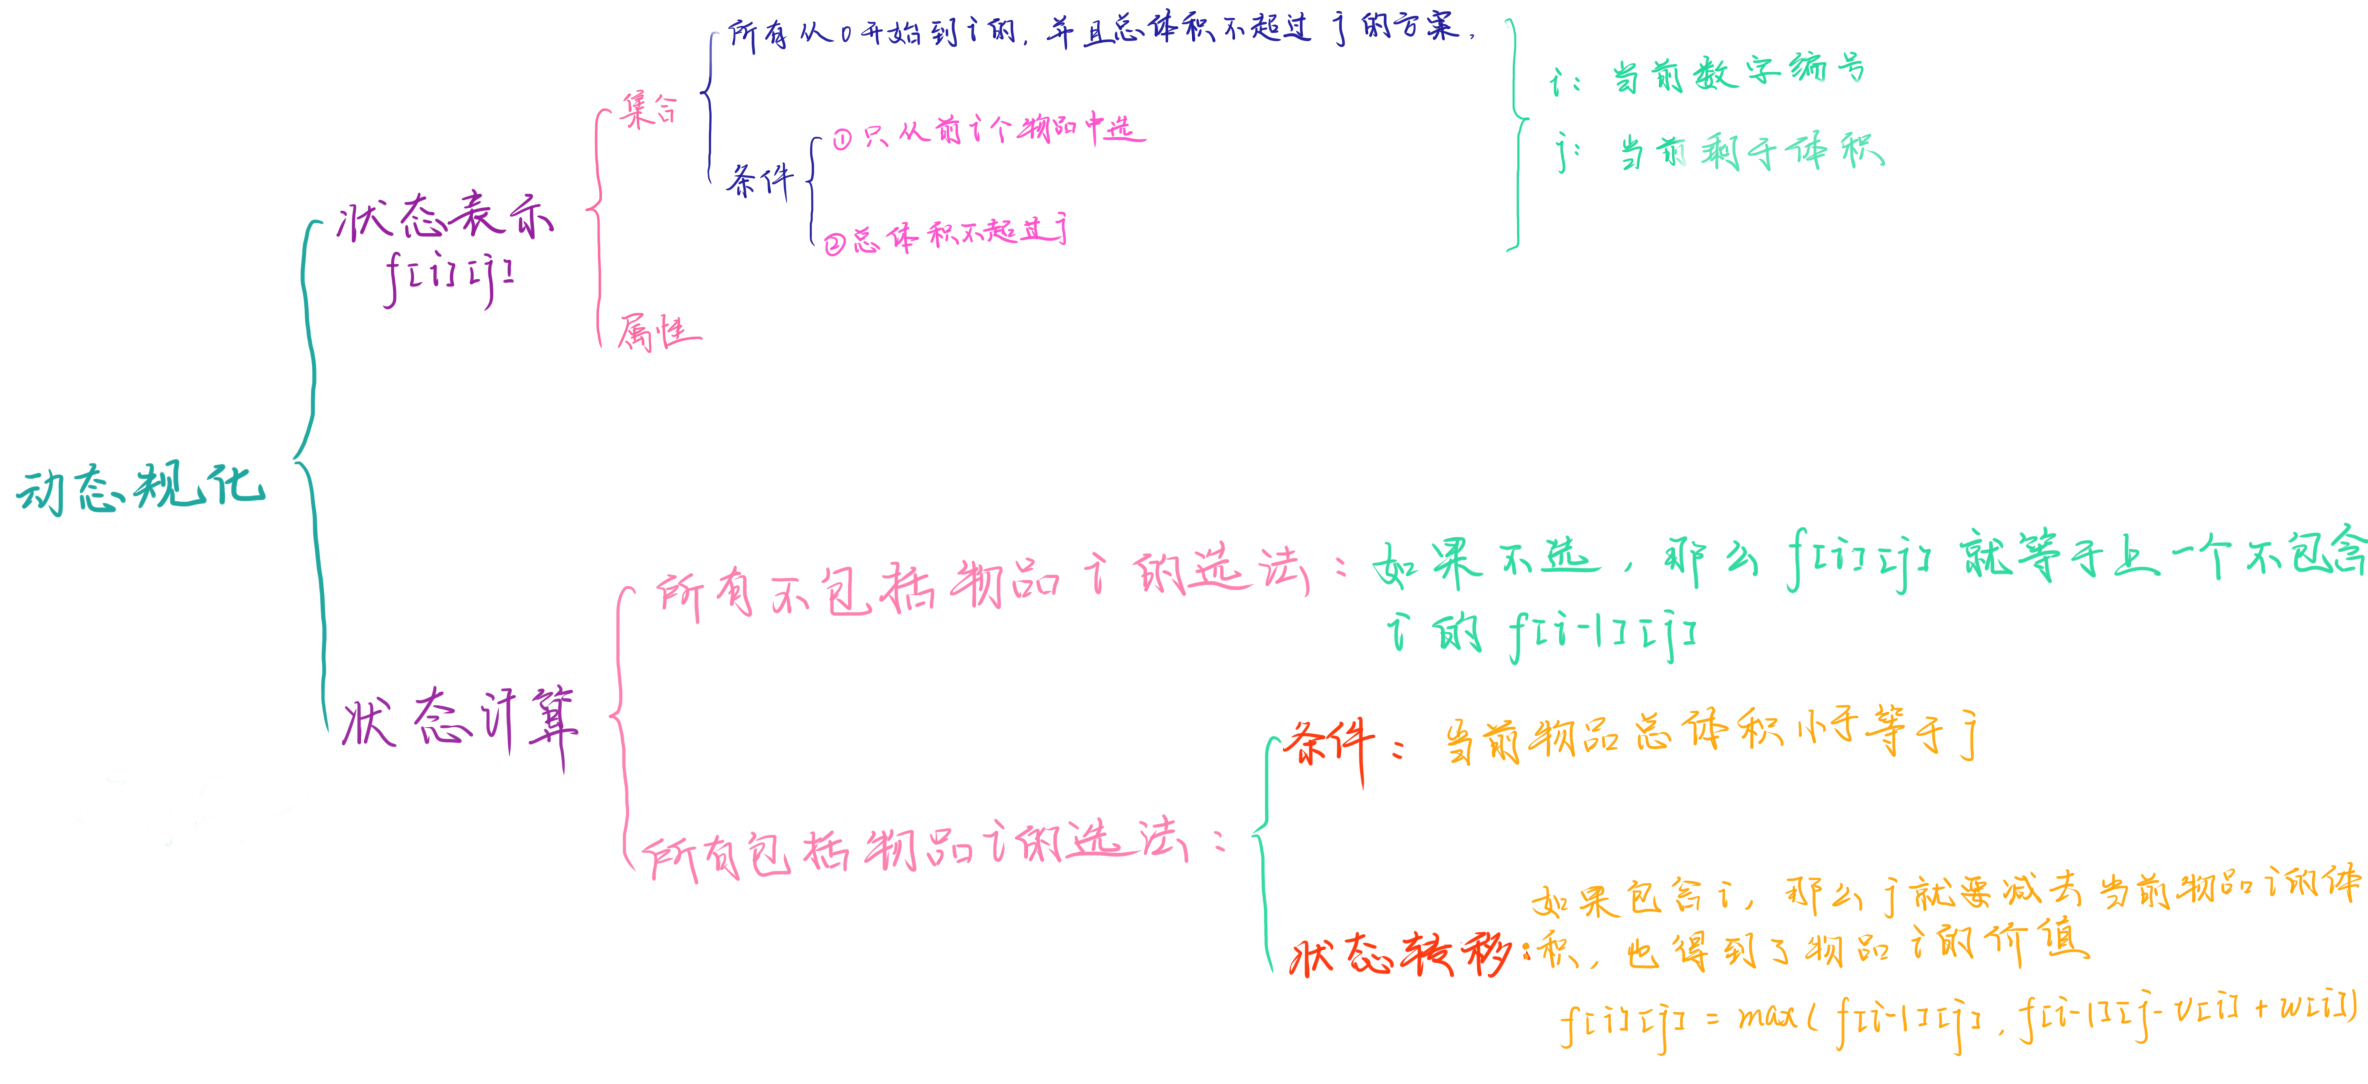 所有从0开始到i的，并且总体积不超过j的方案，
i：当前数字编号
集合
①只从前i个物品中选
j：当前剩于体积
条件
状态表示
②总体积不超过j
f[i][j]
属性
动态规化
所有不包括物品i的选法：如果不选，那么f[i][j]就等于上一个不包含
i的f[i-1][j]
状态计算
条件：当前物品总体积小于等于j
所有包括物品i的选法：
如果包含i，那么j就要减去当前物品i的体
状态转移：积，也得到了物品i的价值
f[i][j] = max( f[i-1][j], f[i-1][j-v[i] + w[i])